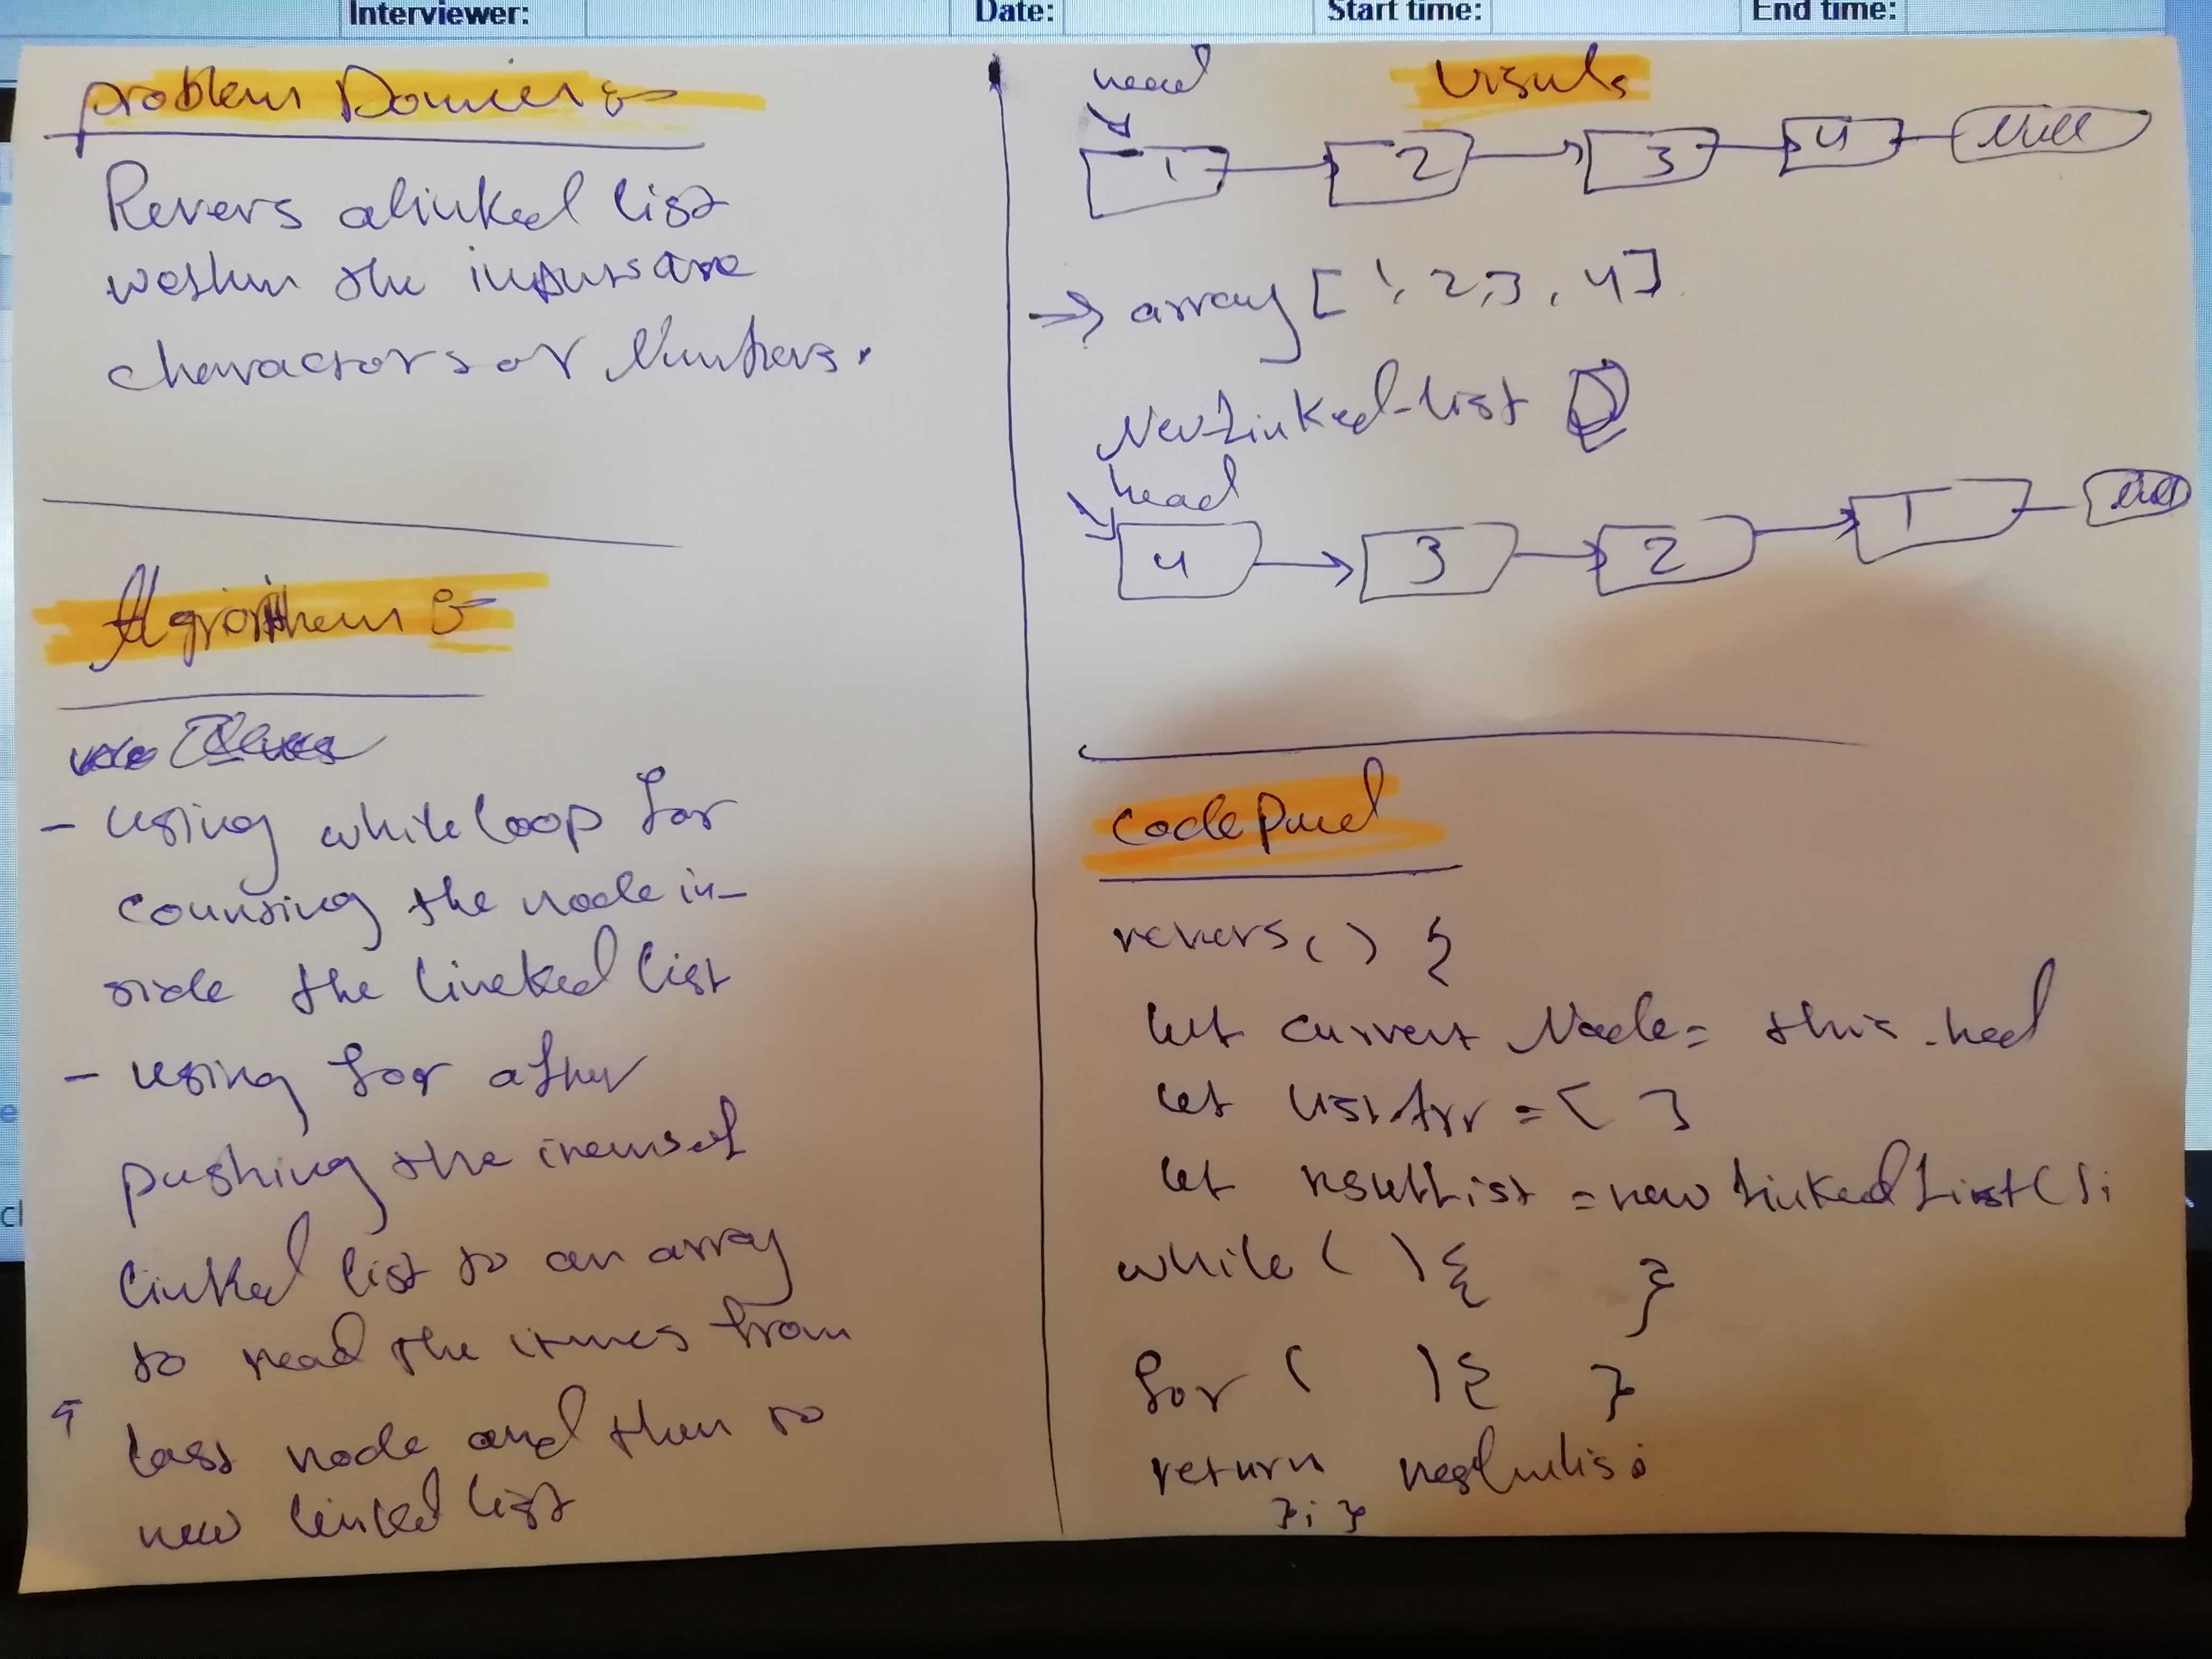 Interviewer: Date: Start time: End time:
problem Domien :-
Revers a linked list
wether the inputs are
charactors or Numbers.
Algorithem :-
- using while loop for
counting the node in-
side the lineked list
- using for after
pushing the items of
linked list to an array
to read the itmes from
last node and then to
new linked list
Visuls
head
1 2 3 4 Null
→ array [1, 2, 3, 4]
New-Linked-list
head
4 3 2 1 Null
code
revers() {
let current Node = this.hed
let listArr = [ ]
let resultList = new LinkedList();
while ( ) { }
for ( ) { }
return
};}